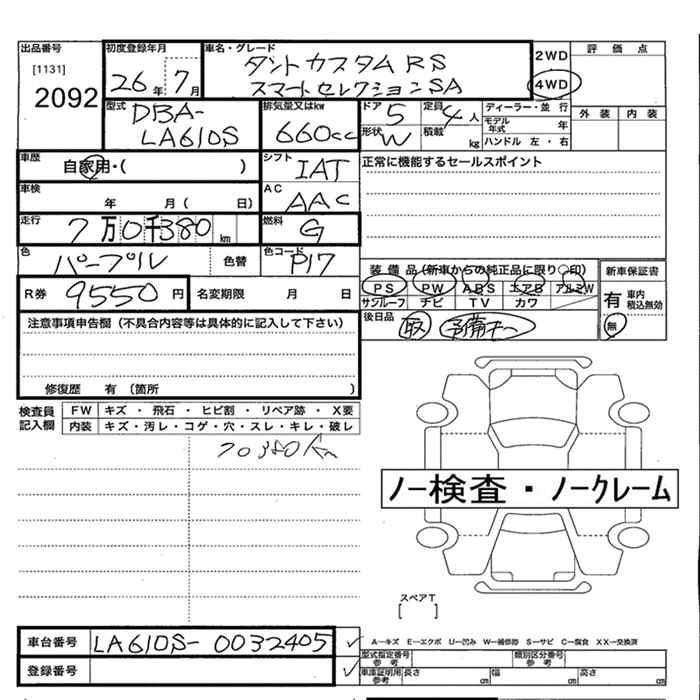 出品番号 初度登録年月 車名・グレード
[1131] 26年 7月 タントカスタムRS
2092 スマートセレクションSA
2WD
4WD
評価点
外装 内装
型式 DBA-
LA610S
排気量又はkw 660cc
ドア 5 定員 4人
形状 W 積載 kg
ディーラー・並行
モデル年式 年
ハンドル 左・右
車歴 自家用・( )
シフト IAT
正常に機能するセールスポイント
車検 年 月( 日)
AC AAC
走行 7万0千380km
燃料 G
色 パープル 色替
色コード P17
装備品(新車からの純正品に限り○印)
PS PW ABS エアB アルミW
サンルーフ ナビ TV カワ
新車保証書
有 車内積込無効
無
R券 9550円 名変期限 月 日
後日品 取
注意事項申告欄(不具合内容等は具体的に記入して下さい)
修復歴 有 (箇所 )
検査員記入欄
FW キズ・飛石・ヒビ割・リペア跡・X要
内装 キズ・汚レ・コゲ・穴・スレ・キレ・破レ
70380K
ノー検査・ノークレーム
スペアT
[ ]
車台番号 LA610S-0032405
登録番号
A-キズ E-エクボ U-凹み W-補修跡 S-サビ C-腐食 XX-交換済
型式指定番号参考 類別区分番号参考
車庫証明用参考 長さ cm 幅 cm 高さ cm